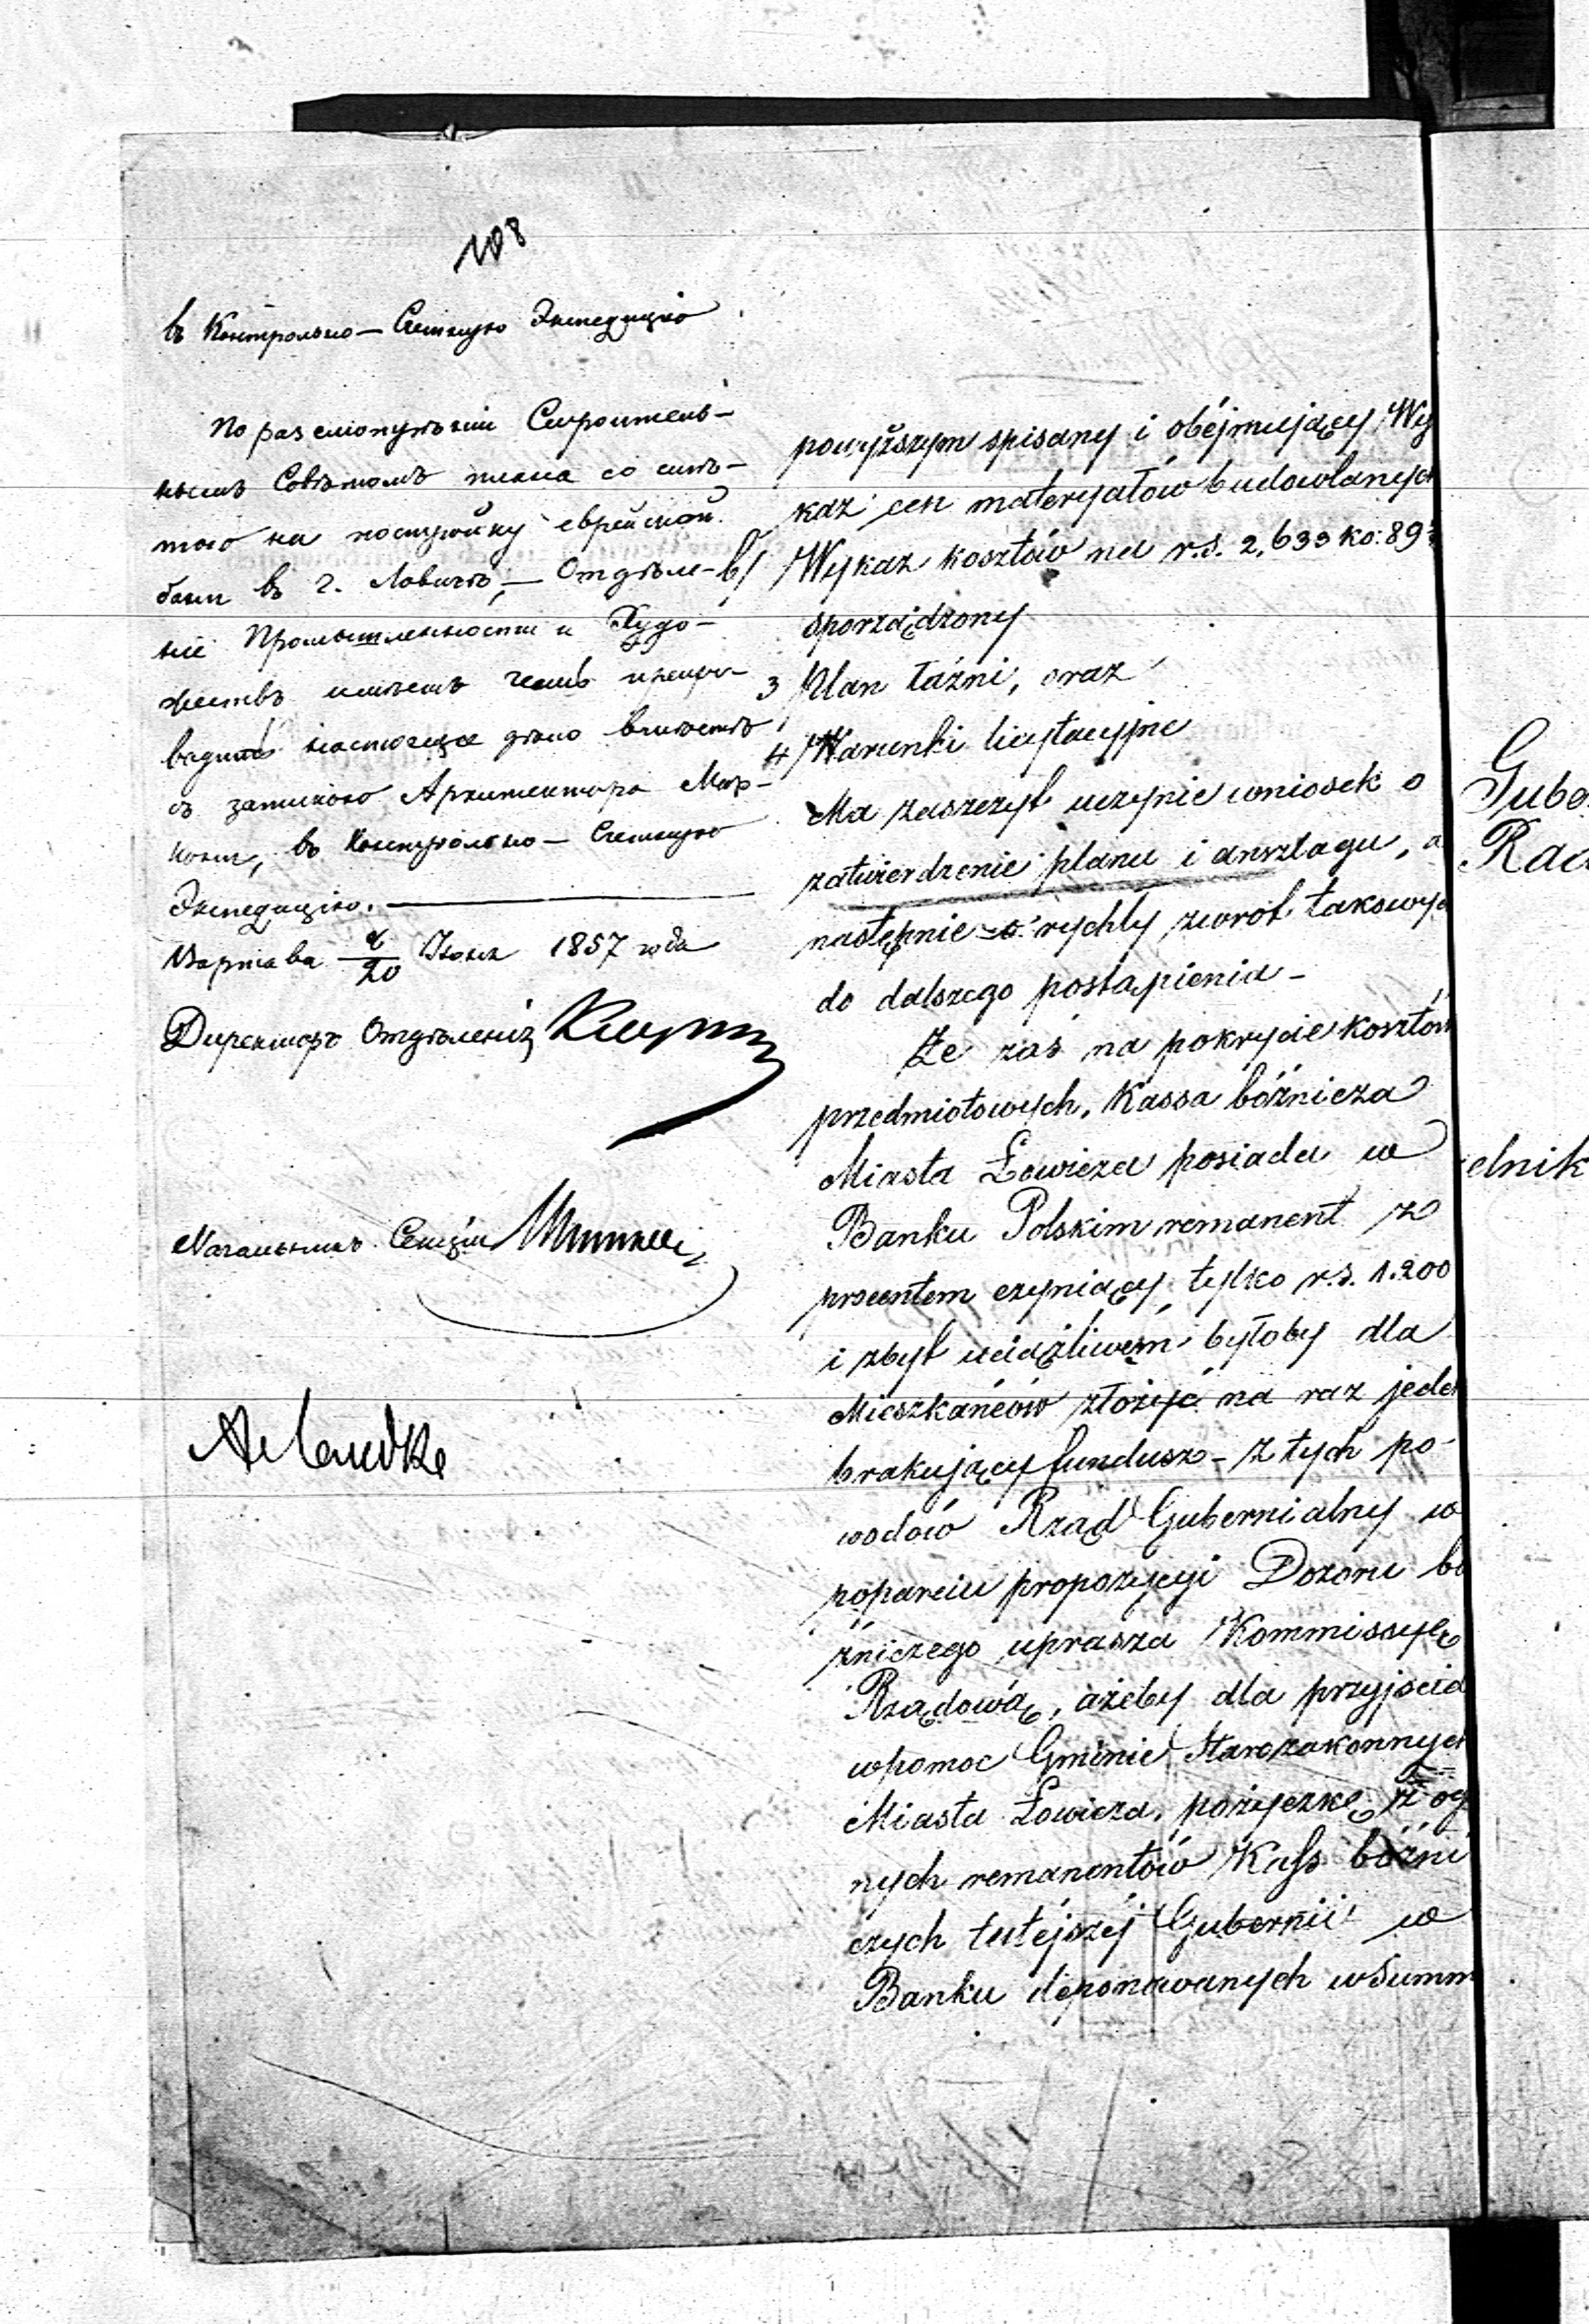 108
въ Контрольно-Счетную Экспедицію
По разсмотрѣніи Строитель-
нымъ Совѣтомъ плана со смѣ-
тою на постройку еврейской
бани въ г. Ловичѣ, - Отдѣле-
ніе Промышленности и Худо-
жествъ имѣетъ честь препро-
вадить настоящее дѣло вмѣстѣ
съ запискою Архитектора Мар-
кони, въ Контрольно-Счетную
Экспедицію.
Варшава 8/20 1857 года
Директоръ Отдѣленія
Начальникъ Секціи
powyższym spisany i obéjmujący Wy
kaz cen materyałów budowlanych
b/ Wykaz kosztów na r.s. 2,633 ko: 89
sporządzony
3 Plan łaźni, oraz
4/ Warunki licytacyjne
Ma zaszczyt uczynić wniosek o
zatwierdzenie planu i anszlagu, a
następnie o rychły zwrot takowych
do dalszego postąpienia -
Że zaś na pokrycie kosztów
przedmiotowych, Kassa bóźnicza
Miasta Łowicza posiada w
Banku Polskim remanent z
procentem czyniący tylko r.s. 1.200
i zbyt uciążliwem byłoby dla
Mieszkańców złożyć na raz jeden
brakujący fundusz - z tych po-
wodów Rząd Gubernialny w
poparciu propozycyi Dozoru bó
źniczego uprasza Kommissyę
Rządową, ażeby dla przyjścia
w pomoc Gminie Starozakonnych
Miasta Łowicza, pożyczkę z og
nych remanentów Kass bóźni
czych tutéjszéj Gubernii w
Banku deponowanych w Summ
Gube
Rad
elnik